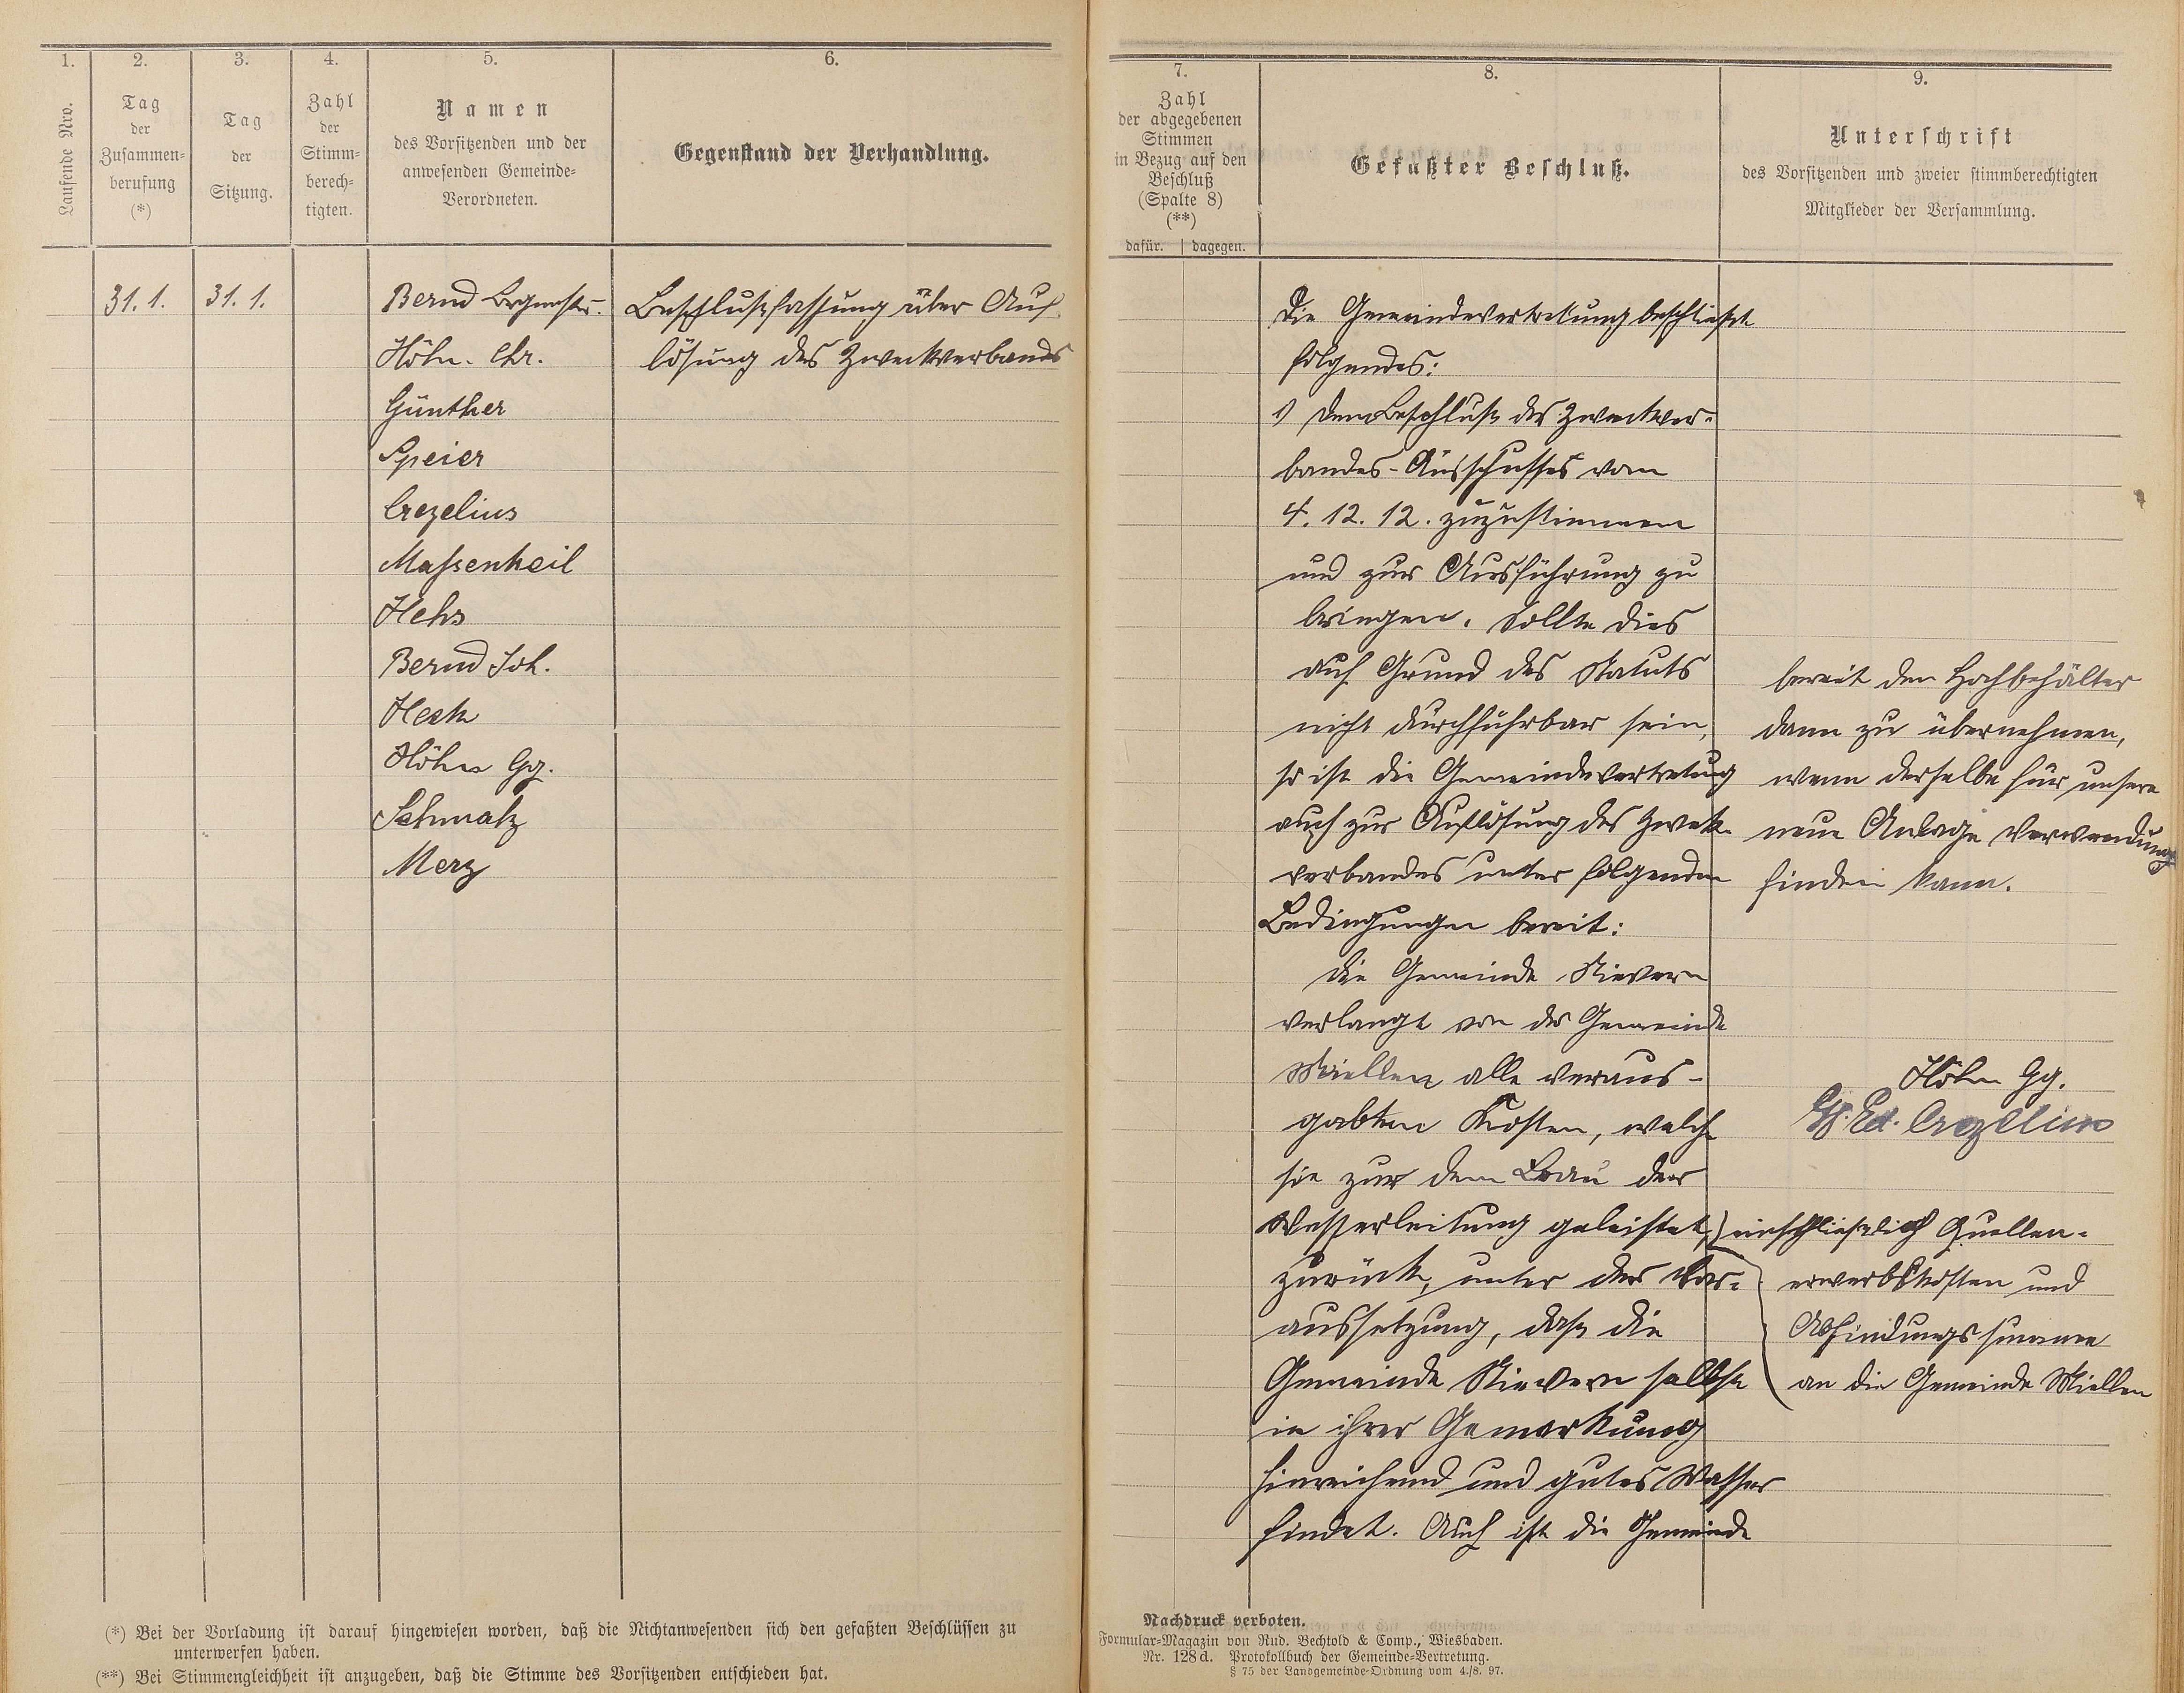 1.
Laufende Nro.
2.
Tag
der
Zusammen=
berufung
(*)
3.
Tag
der
Sitzung.
4.
Zahl
der
Stimm=
berech=
tigten.
5.
Namen
des Vorsitzenden und der
anwesenden Gemeinde=
Verordneten.
6.
Gegenstand der Verhandlung.
31. 1.
31. 1.
Bernd Brgmstr.
Höhn. Chr.
Günther
Speier
Crezelius
Massenkeil
Hehs
Bernd Joh.
Hech
Höhn Gg.
Schmalz
Merz
Beschlußfassung über Auf
lösung des Zweckverbands
(*) Bei der Vorladung ist darauf hingewiesen worden, daß die Nichtanwesenden sich den gefaßten Beschlüssen zu
unterwerfen haben.
(**) Bei Stimmengleichheit ist anzugeben, daß die Stimme des Vorsitzenden entschieden hat.
7.
Zahl
der abgegebenen
Stimmen
in Bezug auf den
Beschluß
(Spalte 8)
(**)
dafür. | dagegen.
8.
Gefaßter Beschluß.
9.
Unterschrift
des Vorsitzenden und zweier stimmberechtigten
Mitglieder der Versammlung.
Die Gemeindevertretung beschließt
folgendes:
1) dem Beschluß des Zweckver=
bandes-Ausschusses vom
4. 12. 12. zuzustimmen
und zur Ausführung zu
bringen. Sollte dies
auf Grund des Statuts
nicht durchführbar sein,
so ist die Gemeindevertretung
auch zur Auflösung des Zweck-
verbandes unter folgenden
Bedingungen bereit:
Die Gemeinde Nievern
verlangt von der Gemeinde
Miellen alle veraus-
gabten Kosten, welche
sie zur dem Bau der
Wasserleitung geleistet,
zurück, unter der Vor=
aussetzung, daß die
Gemeinde Nievern selbst
in ihrer Gemarkung
hinreichend und gutes Wasser
findet. Auch ist die Gemeinde
bereit den Hochbehälter
dann zu übernehmen,
wenn derselbe für unsere
neue Anlage Verwendung
finden kann.
Höhn Gg.
Ed. Crezelius
einschließlich Quellen=
erwerbskosten und
Abfindungssumme
an die Gemeinde Miellen
Nachdruck verboten.
Formular=Magazin von Rud. Bechtold & Comp., Wiesbaden.
Nr. 128 d. Protokollbuch der Gemeinde=Vertretung.
§ 75 der Landgemeinde=Ordnung vom 4./8. 97.